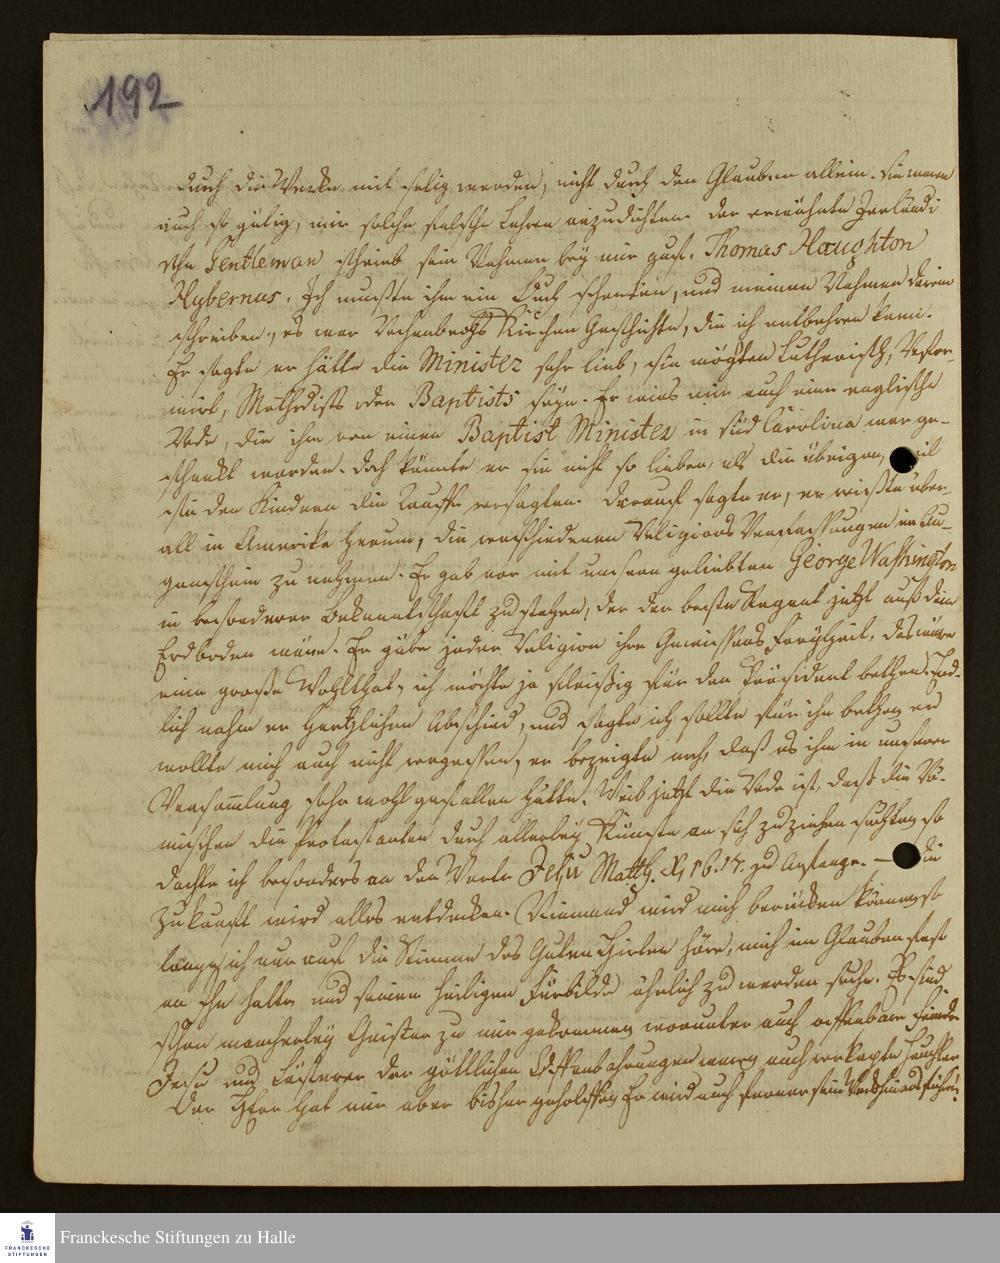 192
durch die Wercke mit selig werden, nicht durch den Glauben allein. Sie waren
auch so gütig, mir solche falsche Lehren anzudichten. Der erwähnte Irrländi
sche Gentleman schrieb sein Nahmen bey mir auf. Thomas Haughton
Hybernus. Ich mußte ihm ein Buch schencken, und meinen Nahmen darein
schreiben, es war Kirchen Geschichte, die ich entbehren kann.
Er sagte er hätte die Minister sehr lieb, sie mögten Lutherisch, Refor-
mirt, Methodists oder Baptists seyn. Er wies mir auch eine englische
Rede, die ihm von einen Baptist Minister in Süd Carolina war ge-
schenckt worden. Doch könnte er sie nicht so lieben, als die übrigen, weil
sie den Kindern die Tauffe versagten. Darauf sagte er, er reißte über-
all in Amerika herum, die verschiedenen Religions Verfassungen in Au-
genschein zu nehmen. Er gab vor mit unserm geliebten George Washington
in besonderer Bekanntschafft zu stehen, der der beste Regent jetzt auf dem
Erdboden wäre. Er gäbe jeder Religion ihre Gewissens Freyheit, das wäre
eine große Wohlthat, ich möchte ja fleißig für den Präsident bethen. End-
lich nahm er hertzlichen Abschied, und sagte ich sollte für ihn bethen, er
wollte mich auch nicht vergessen, er bezeigte noch, daß es ihm in unserer
Versamlung sehr wohl gefallen hätte. Weil jetzt die Rede ist, daß die Rö-
mischen die Protestanten durch allerley Künste an sich zu ziehen suchten, so
dachte ich besonders an den Worte Jesu Matth. X, 16. 17. zu Anfange. — Die
Zukunft wird alles entdecken. Niemand wird mich berücken können, so
lange ich nur auf die Stimme des Guten Hirten höre, mich im Glauben fest
an Ihn halte, und seinen heiligen Fürbilde ähnlich zu werden suche. Es sind
schon mancherley Geister zu mir gekommen, worunter auch offenbare Feinde
Jesu und Lästerer der göttlichen Offenbahrungen waren, auch verkapte Heuchler
Der HErr hat mir aber bisher geholffen, Er wird auch ferner sein Werck hinaus führen.
Franckesche Stiftungen zu Halle
FRANCKESCHE
STIFTUNGEN